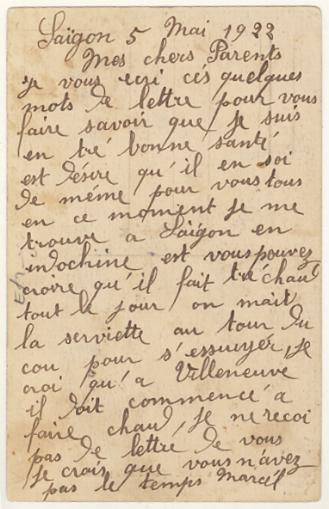 Saigon 5 Mai 1922
Mes chers Parents
Je vous ecri ces quelques
mots de lettre pour vous
faire savoir que je suis
en tré bonne santé
est désire qu'il en soi
de même pour vous tous
en ce moment je me
trouve a Saigon en
indochine est vous pouvez
croire qu'il fait tré chaud
tout le jour on mait
la serviette au tour du
cou pour s'essuyer, je
croi qu'a Villeneuve
il doit commencé a
faire chaud, je ne recoi
pas de lettre de vous
je crois que vous n'avez
pas le temps Marcel